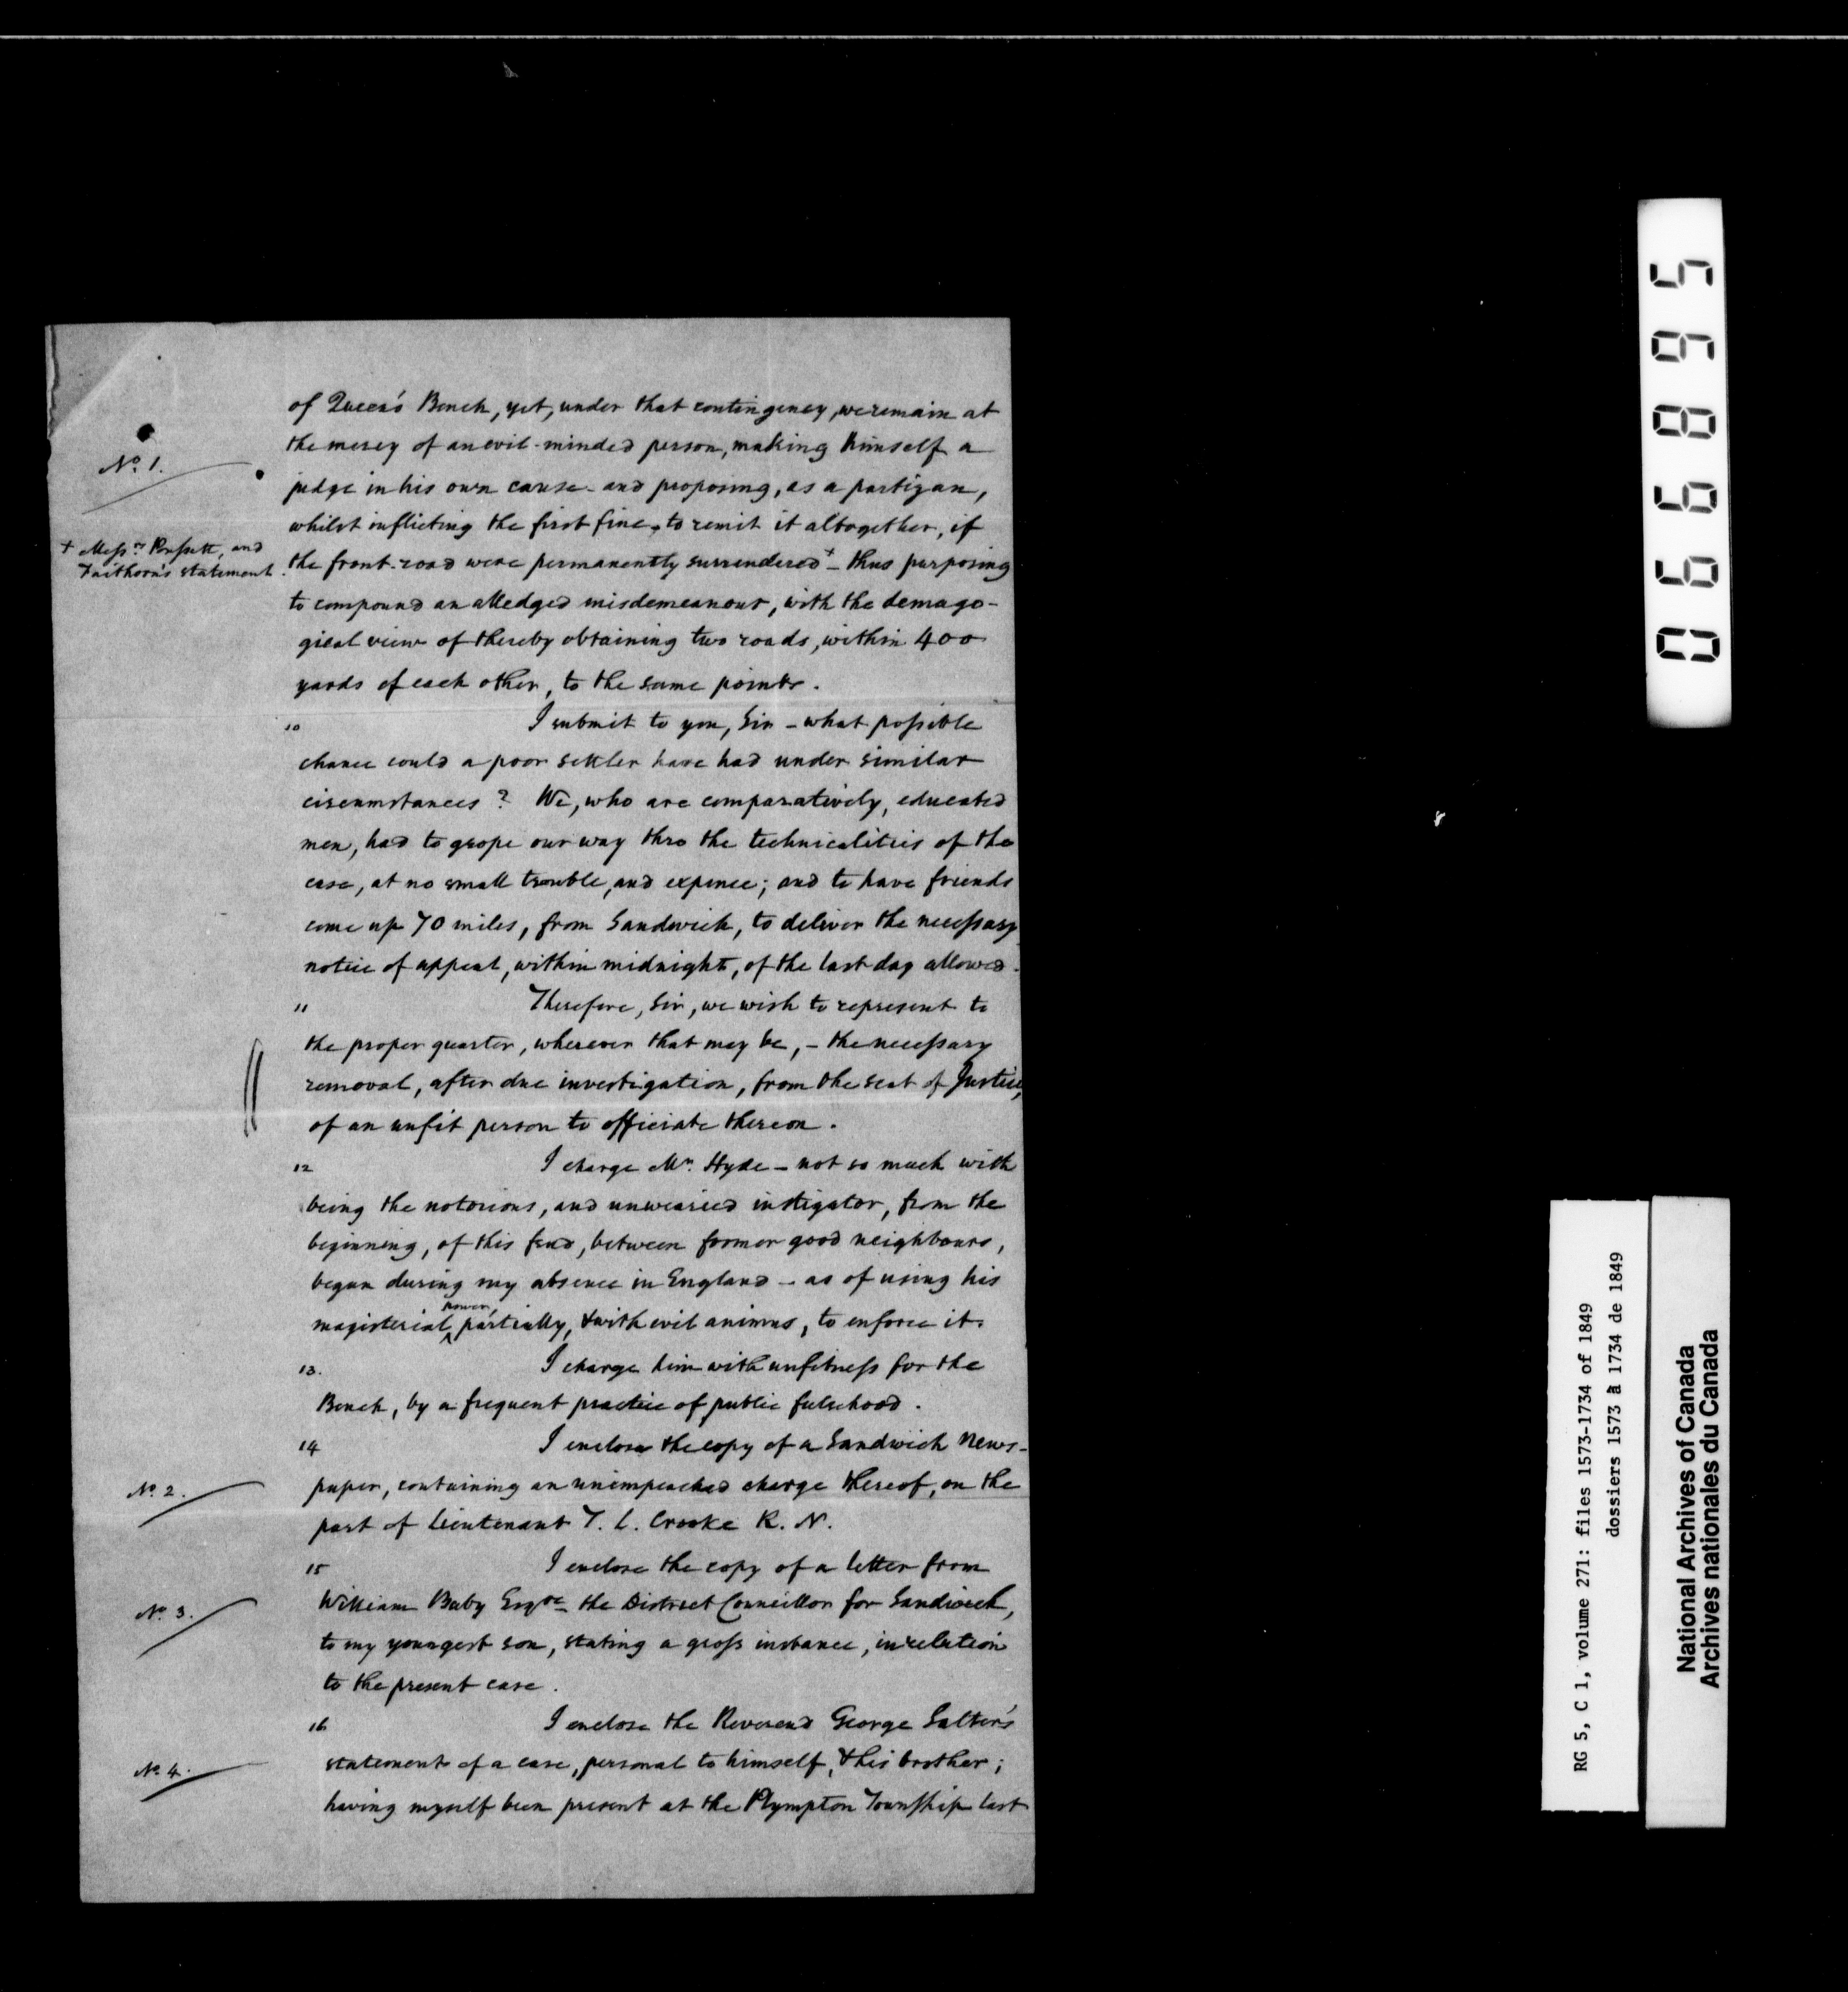 of Queen's Bench, yet, under that contingency, we remain at
the mercy of an evil-minded person, making himself a
No. 1.
judge in his own cause - and proposing, as a partizan,
whilst inflicting the first fine, to remit it altogether, if
+ Messrs and
Faithorn's statement.
the front-road were permanently surrendered + - thus purposing
to compound an alledged misdemeanour, with the demago-
gical view of thereby obtaining two roads, within 400
yards of each other, to the same points.
10 I submit to you, Sir - what possible
chance could a poor settler have had under similar
circumstances? We, who are comparatively, educated
men, had to grope our way thro the technicalities of the
case, at no small trouble, and expence; and to have friends
come up 70 miles, from Sandwich, to deliver the necessary
notice of appeal, within midnight, of the last day allowed.
11 Therefore, Sir, we wish to represent to
the proper quarter, wherever that may be, - the necessary
removal, after due investigation, from the seat of Justice,
of an unfit person to officiate thereon.
12 I charge Mr. Hyde - not so much with
being the notorious, and unwearied instigator, from the
beginning, of this feud, between former good neighbours,
begun during my absence in England - as of using his
magisterial power, partially, & with evil animus, to enforce it.
13. I charge him with unfitness for the
Bench, by a frequent practice of public falsehood.
14 I enclose the copy of a Sandwich News-
No. 2.
paper, containing an unimpeached charge thereof, on the
part of Lieutenant T. L. Crooke R. N.
15 I enclose the copy of a letter from
No. 3.
William Baby Esqre the District Councillor for Sandwich,
to my youngest son, stating a gross instance, in relation
to the present case.
16 I enclose the Reverend George Salter's
No. 4.
statement of a case, personal to himself, & his brother;
having myself been present at the Plympton Township last
066895
RG 5, C 1, volume 271: files 1573-1734 of 1849
dossiers 1573 à 1734 de 1849
National Archives of Canada
Archives nationales du Canada